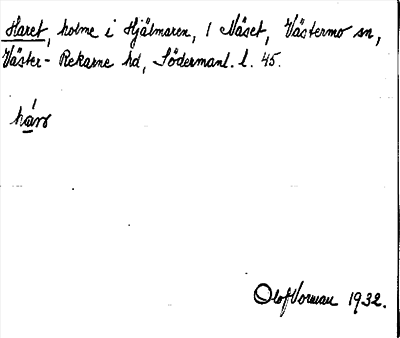 Haret, holme i Hjälmaren, 1 Näset, Västermo sn,
Väster-Rekarne hd, Södermanl. l. 45.
Olof Vorman 1932.